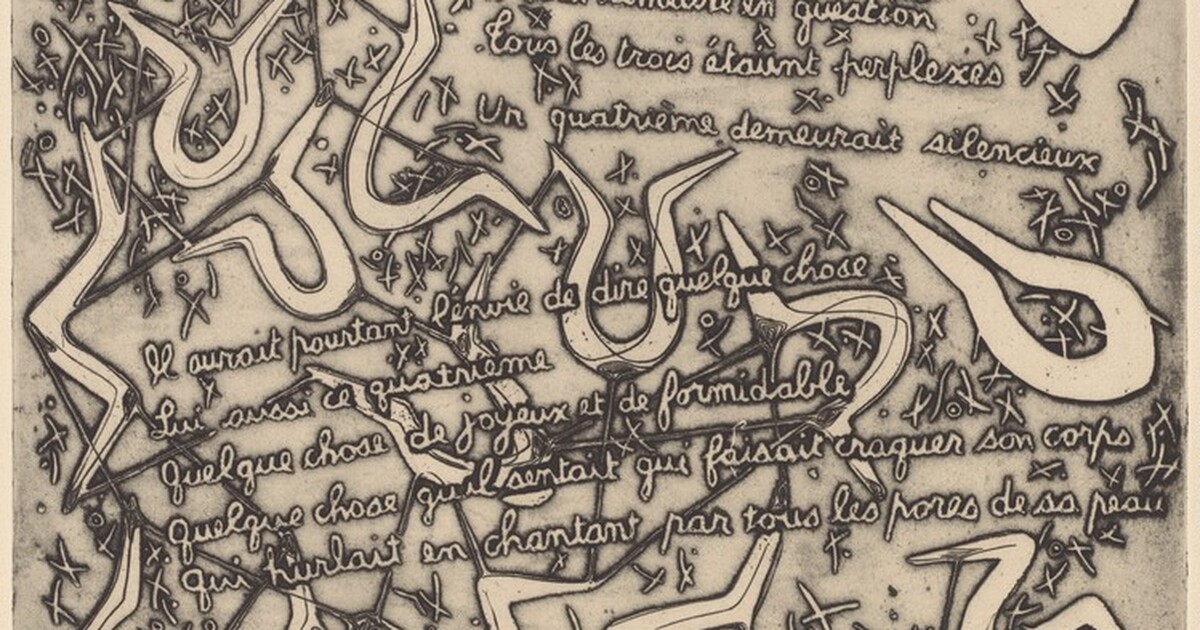 en question
tous les trois étaient perplexes
Un quatrième demeurait silencieux
Il aurait pourtant l'envie de dire quelque chose
Lui aussi ce quatrième
quelque chose de joyeux et de formidable
quelque chose qu'il sentait qui faisait craquer son corps
qui hurlait en chantant par tous les pores de sa peau